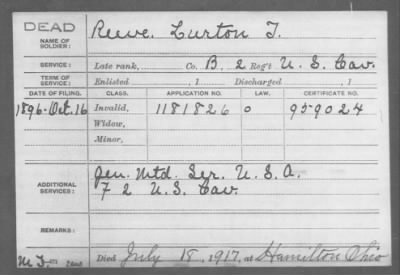 DEAD
NAME OF SOLDIER: Reeve. Lurton T.
SERVICE: Late rank, Co. B, 2 Reg't U. S. Cav.
TERM OF SERVICE: Enlisted , 1 Discharged , 1
DATE OF FILING. CLASS. APPLICATION NO. LAW. CERTIFICATE NO.
1896-Oct.16 Invalid, 1181826 0 959024
Widow,
Minor,
ADDITIONAL SERVICES: Gen. Mtd. Ser. U. S. A.
F 2 U.S. Cav.
REMARKS:
Died July 18, 1917, at Hamilton Ohio